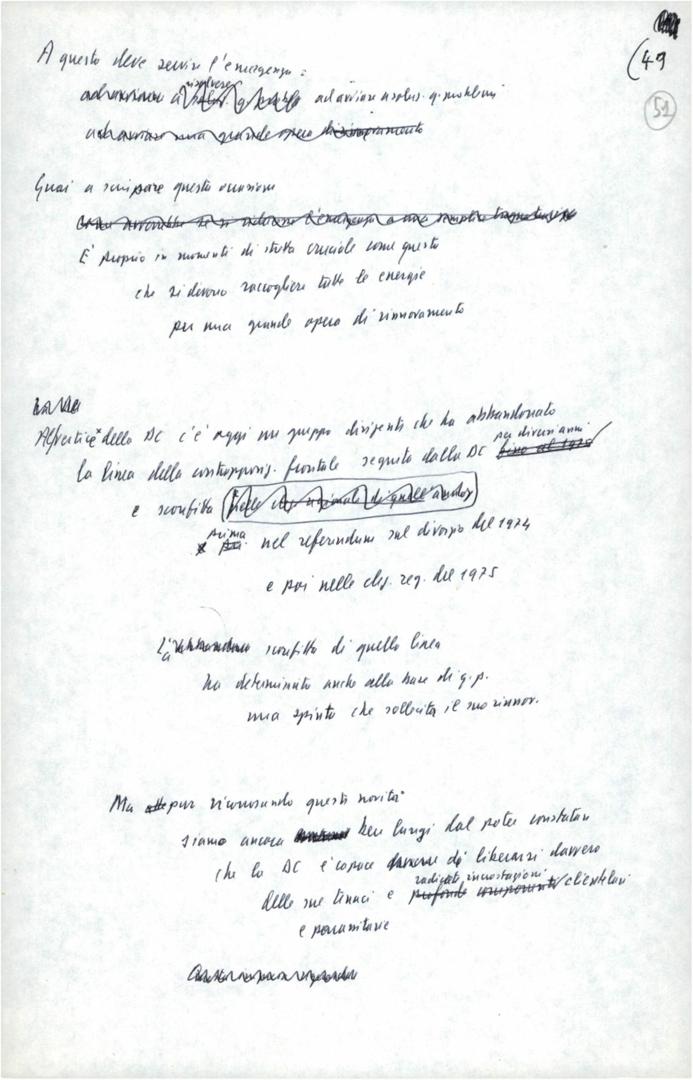 (49
51
A questo deve servire l'emergenza:
risolvere
ad avviare a ad avviare a risolv. q. problemi
ad avviare una grande opera di rinnovamento
Guai a sciupare questa occasione
E' proprio in momenti di stretta cruciale come questo
che si devono raccogliere tutte le energie
per una grande opera di rinnovamento
Al vertice della DC c'è oggi un gruppo dirigente che ha abbandonato
per diversi anni
la linea della contrappos. frontale seguita dalla DC fino al 1975
e sconfitta
prima
nel referendum sul divorzio del 1974
e poi nelle elez. reg. del 1975
La sconfitta di quella linea
ha determinato anche alla base di q. p.
una spinta che sollecita il suo rinnov.
Ma pur riconoscendo questa novità
siamo ancora ben lungi dal poter constatare
che la DC è capace di liberarsi davvero
radicate incrostazioni
delle sue tenaci e profonde clientelari
e parassitarie